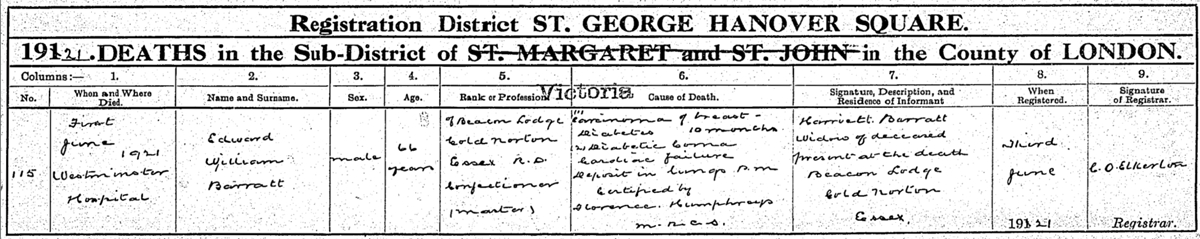 Registration District ST. GEORGE HANOVER SQUARE.
1921. DEATHS in the Sub-District of ST. MARGARET and ST. JOHN in the County of LONDON.
Victoria
Columns:— 1. 2. 3. 4. 5. 6. 7. 8. 9.
No. When and Where Died. Name and Surname. Sex. Age. Rank or Profession Cause of Death. Signature, Description, and Residence of Informant When Registered. Signature of Registrar.
115
First
June 1921
Westminster
Hospital
Edward
William
Barratt
male
66
years
of Beacon Lodge
Cold Norton
Essex R.D.
Confectioner
(master)
Carcinoma of breast -
Diabetes 10 months
Diabetic Coma
Cardiac failure
Deposit in lungs P.M
Certified by
Florence Humphreys
M.R.C.S.
Harriett Barratt
Widow of deceased
present at the death
Beacon Lodge
Cold Norton
Essex
Third
June
1921
C.O. Elkerton
Registrar.